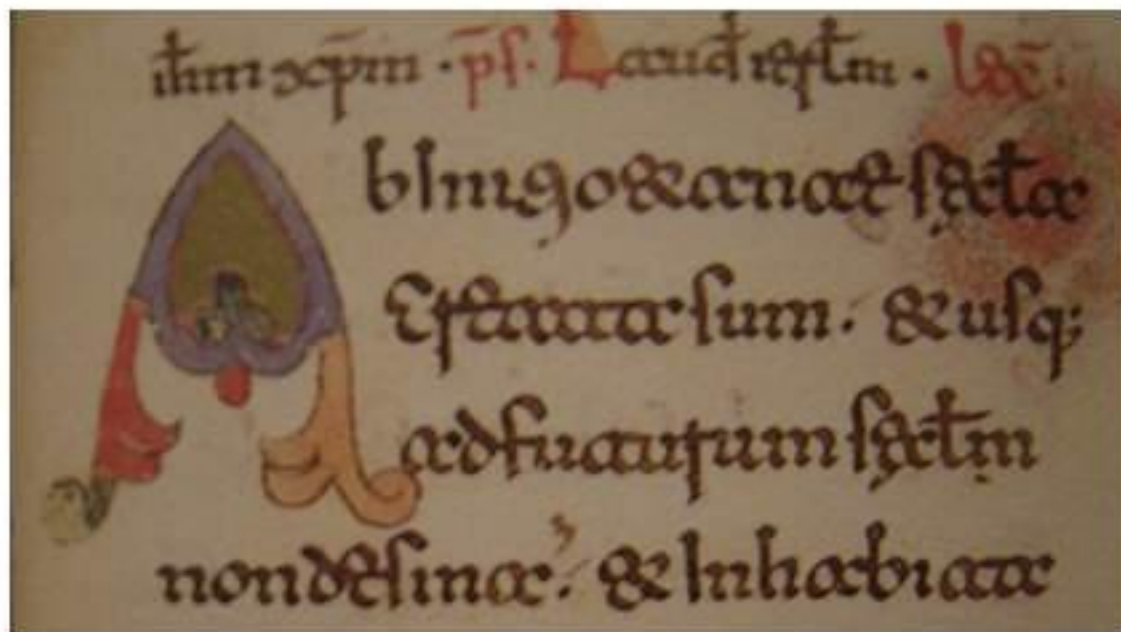 ihm xpm · ps. Lauda ierlm . Lec.
Ab Initio & ante sęcla
creata sum . & usq;
ad futurum sęclm
non desina . & In habita